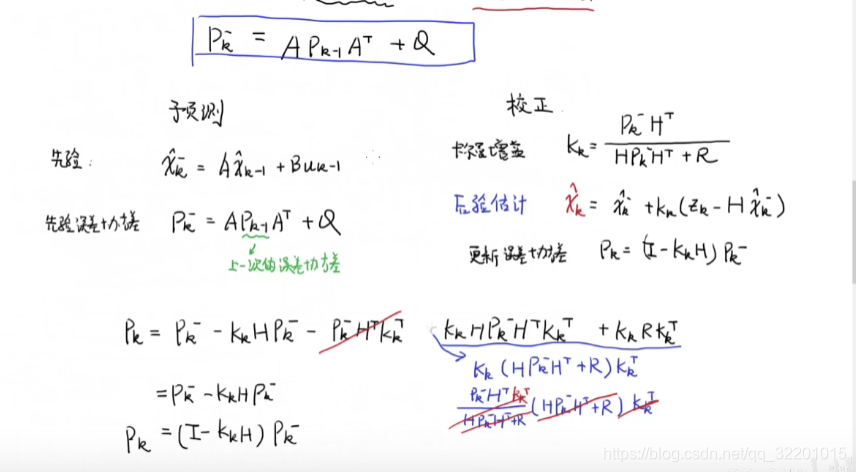 P_k^- = A P_{k-1} A^T + Q
预测
先验: x̂_k^- = A x̂_{k-1} + B u_{k-1}
先验误差协方差 P_k^- = A P_{k-1} A^T + Q
上一次的误差协方差
校正
卡尔曼增益 K_k = P_k^- H^T / (H P_k^- H^T + R)
后验估计 x̂_k = x̂_k^- + K_k (z_k - H x̂_k^-)
更新误差协方差 P_k = (I - K_k H) P_k^-
P_k = P_k^- - K_k H P_k^- - P_k^- H^T K_k^T K_k H P_k^- H^T K_k^T + K_k R K_k^T
K_k (H P_k^- H^T + R) K_k^T
P_k^- H^T K_k^T / (H P_k^- H^T + R) (H P_k^- H^T + R) K_k^T
= P_k^- - K_k H P_k^-
P_k = (I - K_k H) P_k^-
https://blog.csdn.net/qq_32201015